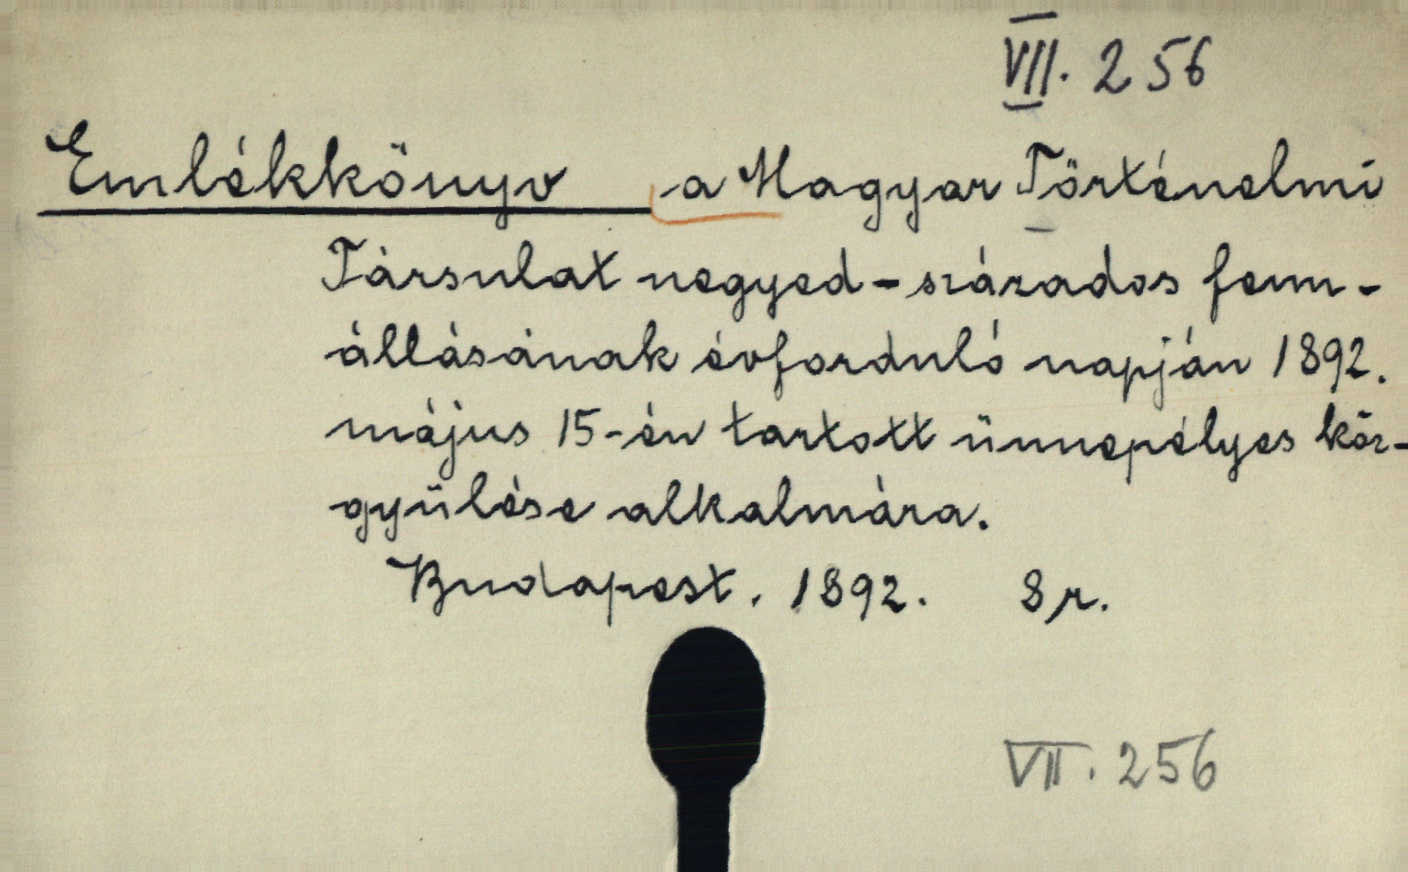 VII. 256
Emlékkönyv a Magyar Történelmi
Társulat negyed-százados fenn-
állásának évforduló napján 1892.
május 15-én tartott ünnepélyes köz-
gyülése alkalmára.
Budapest. 1892. 8 r.
VII. 256